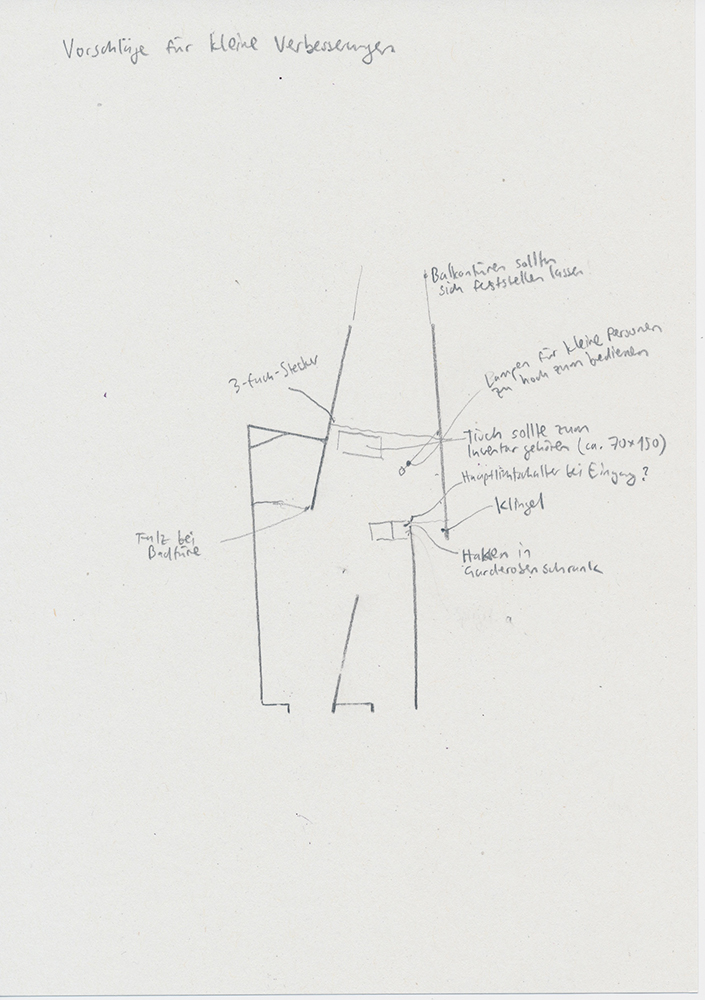 Vorschläge für kleine Verbesserungen
Balkontüren sollten
sich feststellen lassen
Lampen für kleine Personen
zu hoch zum bedienen
3-fach-Stecker
Tisch sollte zum
Inventar gehören (ca. 70x150)
Hauptlichtschalter bei Eingang?
Klingel
Falz bei
Badtüre
Haken in
Garderobenschrank